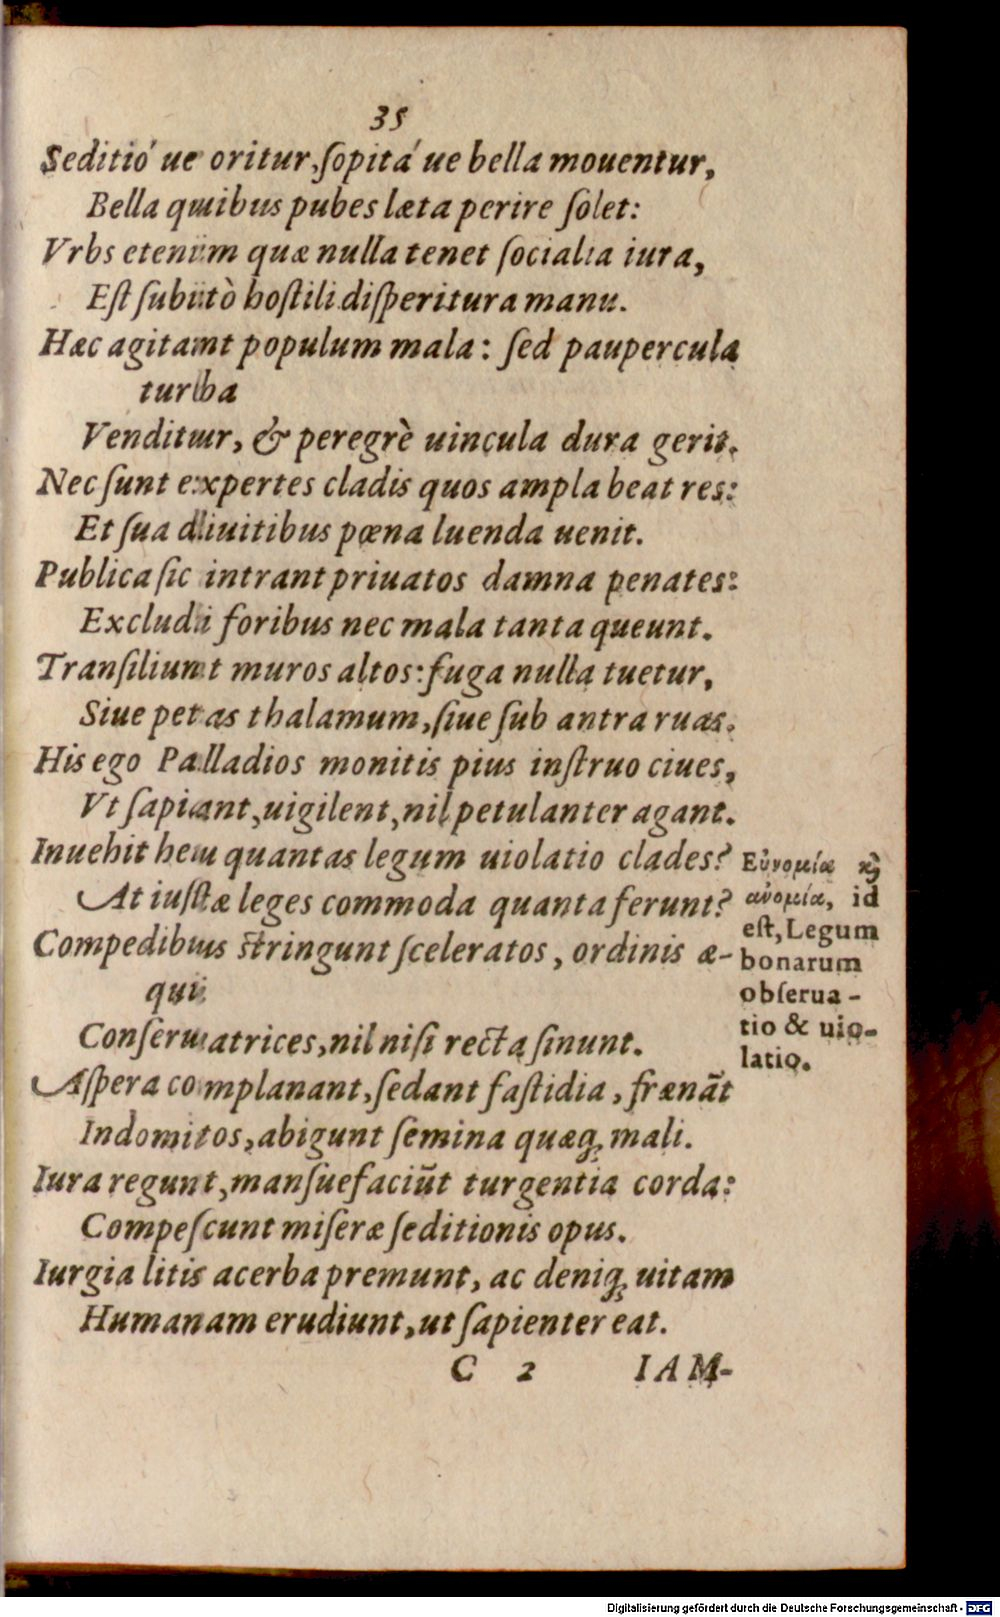 35
Seditió ue oritur, ſopitá ue bella mouentur,
Bella quibus pubes læta perire ſolet:
Vrbs etenim quæ nulla tenet ſocialia iura,
Eſt ſubitò hoſtili diſperitura manu.
Hæc agitant populum mala: ſed paupercula
turba
Venditur, & peregrè uincula dura gerit.
Nec ſunt expertes cladis quos ampla beat res:
Et ſua diuitibus pœna luenda uenit.
Publica ſic intrant priuatos damna penates:
Excludi foribus nec mala tanta queunt.
Tranſiliunt muros altos: fuga nulla tuetur,
Siue petas thalamum, ſiue ſub antra ruas.
His ego Palladios monitis pius inſtruo ciues,
Vt ſapiant, uigilent, nil petulanter agant.
Inuehit heu quantas legum uiolatio clades?
At iuſtæ leges commoda quanta ferunt?
Compedibus ſtringunt ſceleratos, ordinis æ-
qui
Conſeruatrices, nil niſi recta ſinunt.
Aſpera complanant, ſedant faſtidia, frænãt
Indomitos, abigunt ſemina quæq; mali.
Iura regunt, manſuefaciũt turgentia corda:
Compeſcunt miſeræ ſeditionis opus.
Iurgia litis acerba premunt, ac deniq; uitam
Humanam erudiunt, ut ſapienter eat.
C 2 IAM-
Εὐνομία ϗ̀
ανομία, id
eſt, Legum
bonarum
obſerua-
tio & uio-
latio.
Digitalisierung gefördert durch die Deutsche Forschungsgemeinschaft - DFG